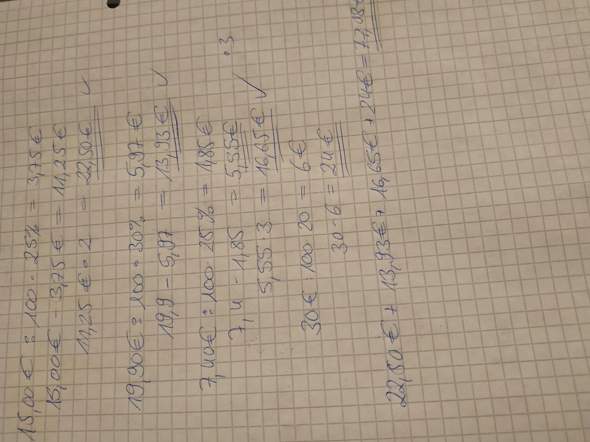 15,00€ : 100 · 25% = 3,75€
15,00€ - 3,75€ = 11,25€
11,25€ · 2 = 22,50€ ✓
19,90€ : 100 · 30% = 5,97€
19,9 - 5,97 = 13,93€ ✓
7,40€ : 100 · 25% = 1,85€
7,4 - 1,85 = 5,55€ · 3
5,55 · 3 = 16,65€ ✓
30€ 100 20 = 6€
30-6 = 24€
22,50€ + 13,93€ + 16,65€ + 24€ = 77,08€